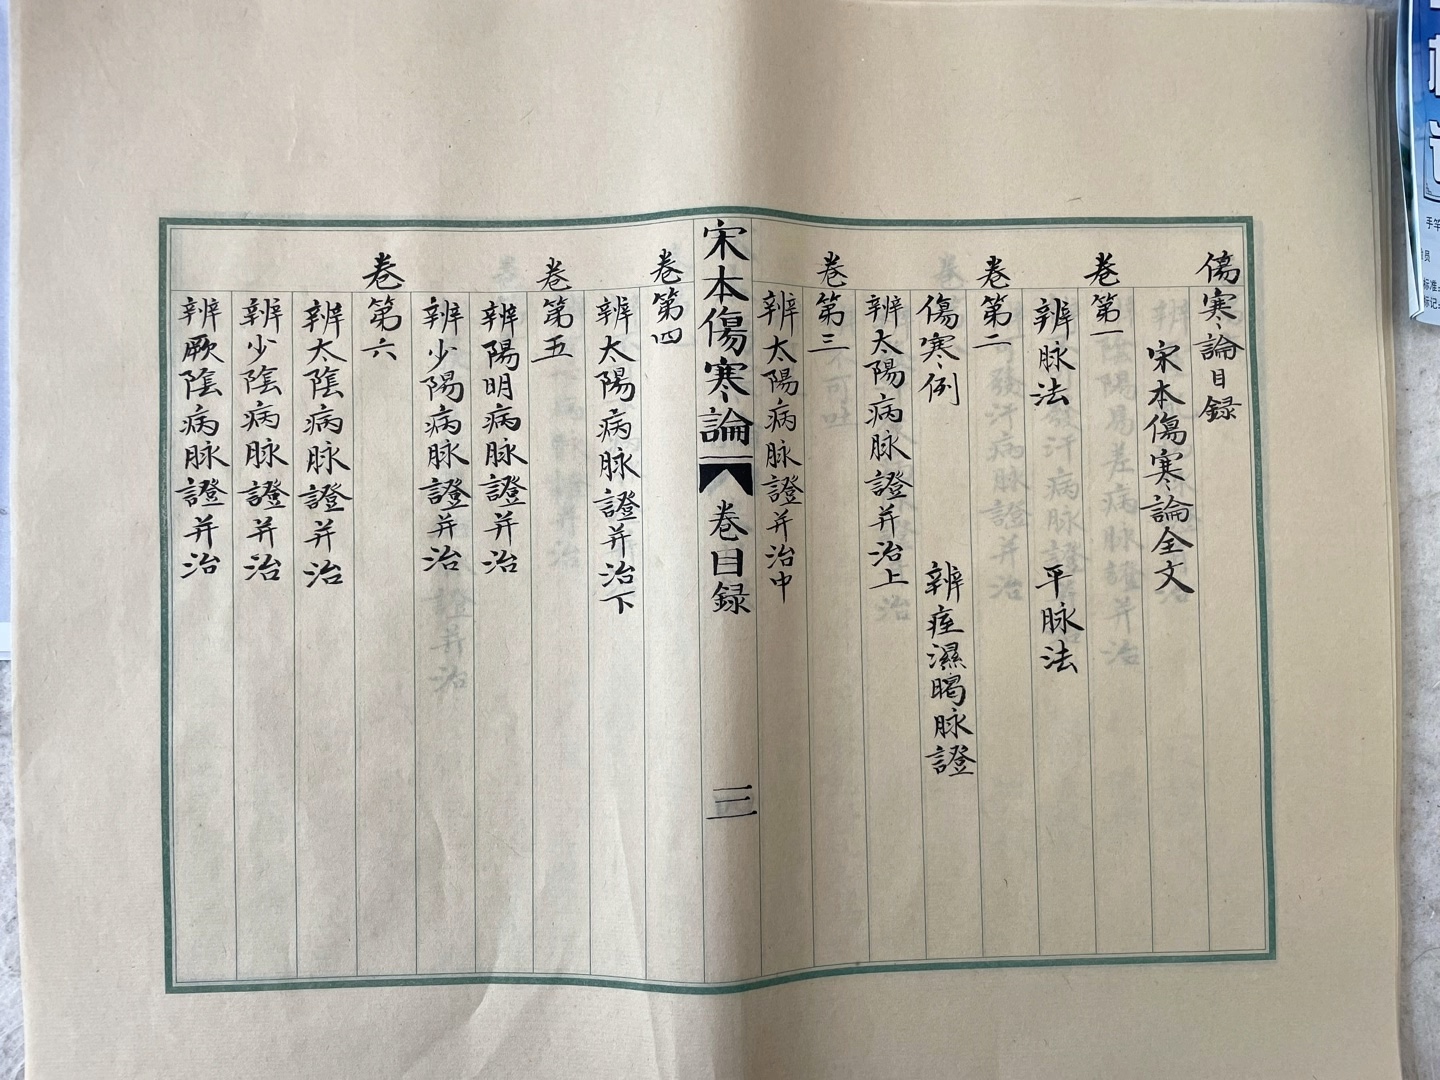 傷寒論目録
宋本傷寒論全文
卷第一
辨脉法 平脉法
卷第二
傷寒例 辨痓濕暍脉證
辨太陽病脉證并治上
卷第三
辨太陽病脉證并治中
宋本傷寒論 卷目録 三
卷第四
辨太陽病脉證并治下
卷第五
辨陽明病脉證并治
辨少陽病脉證并治
卷第六
辨太陰病脉證并治
辨少陰病脉證并治
辨厥陰病脉證并治